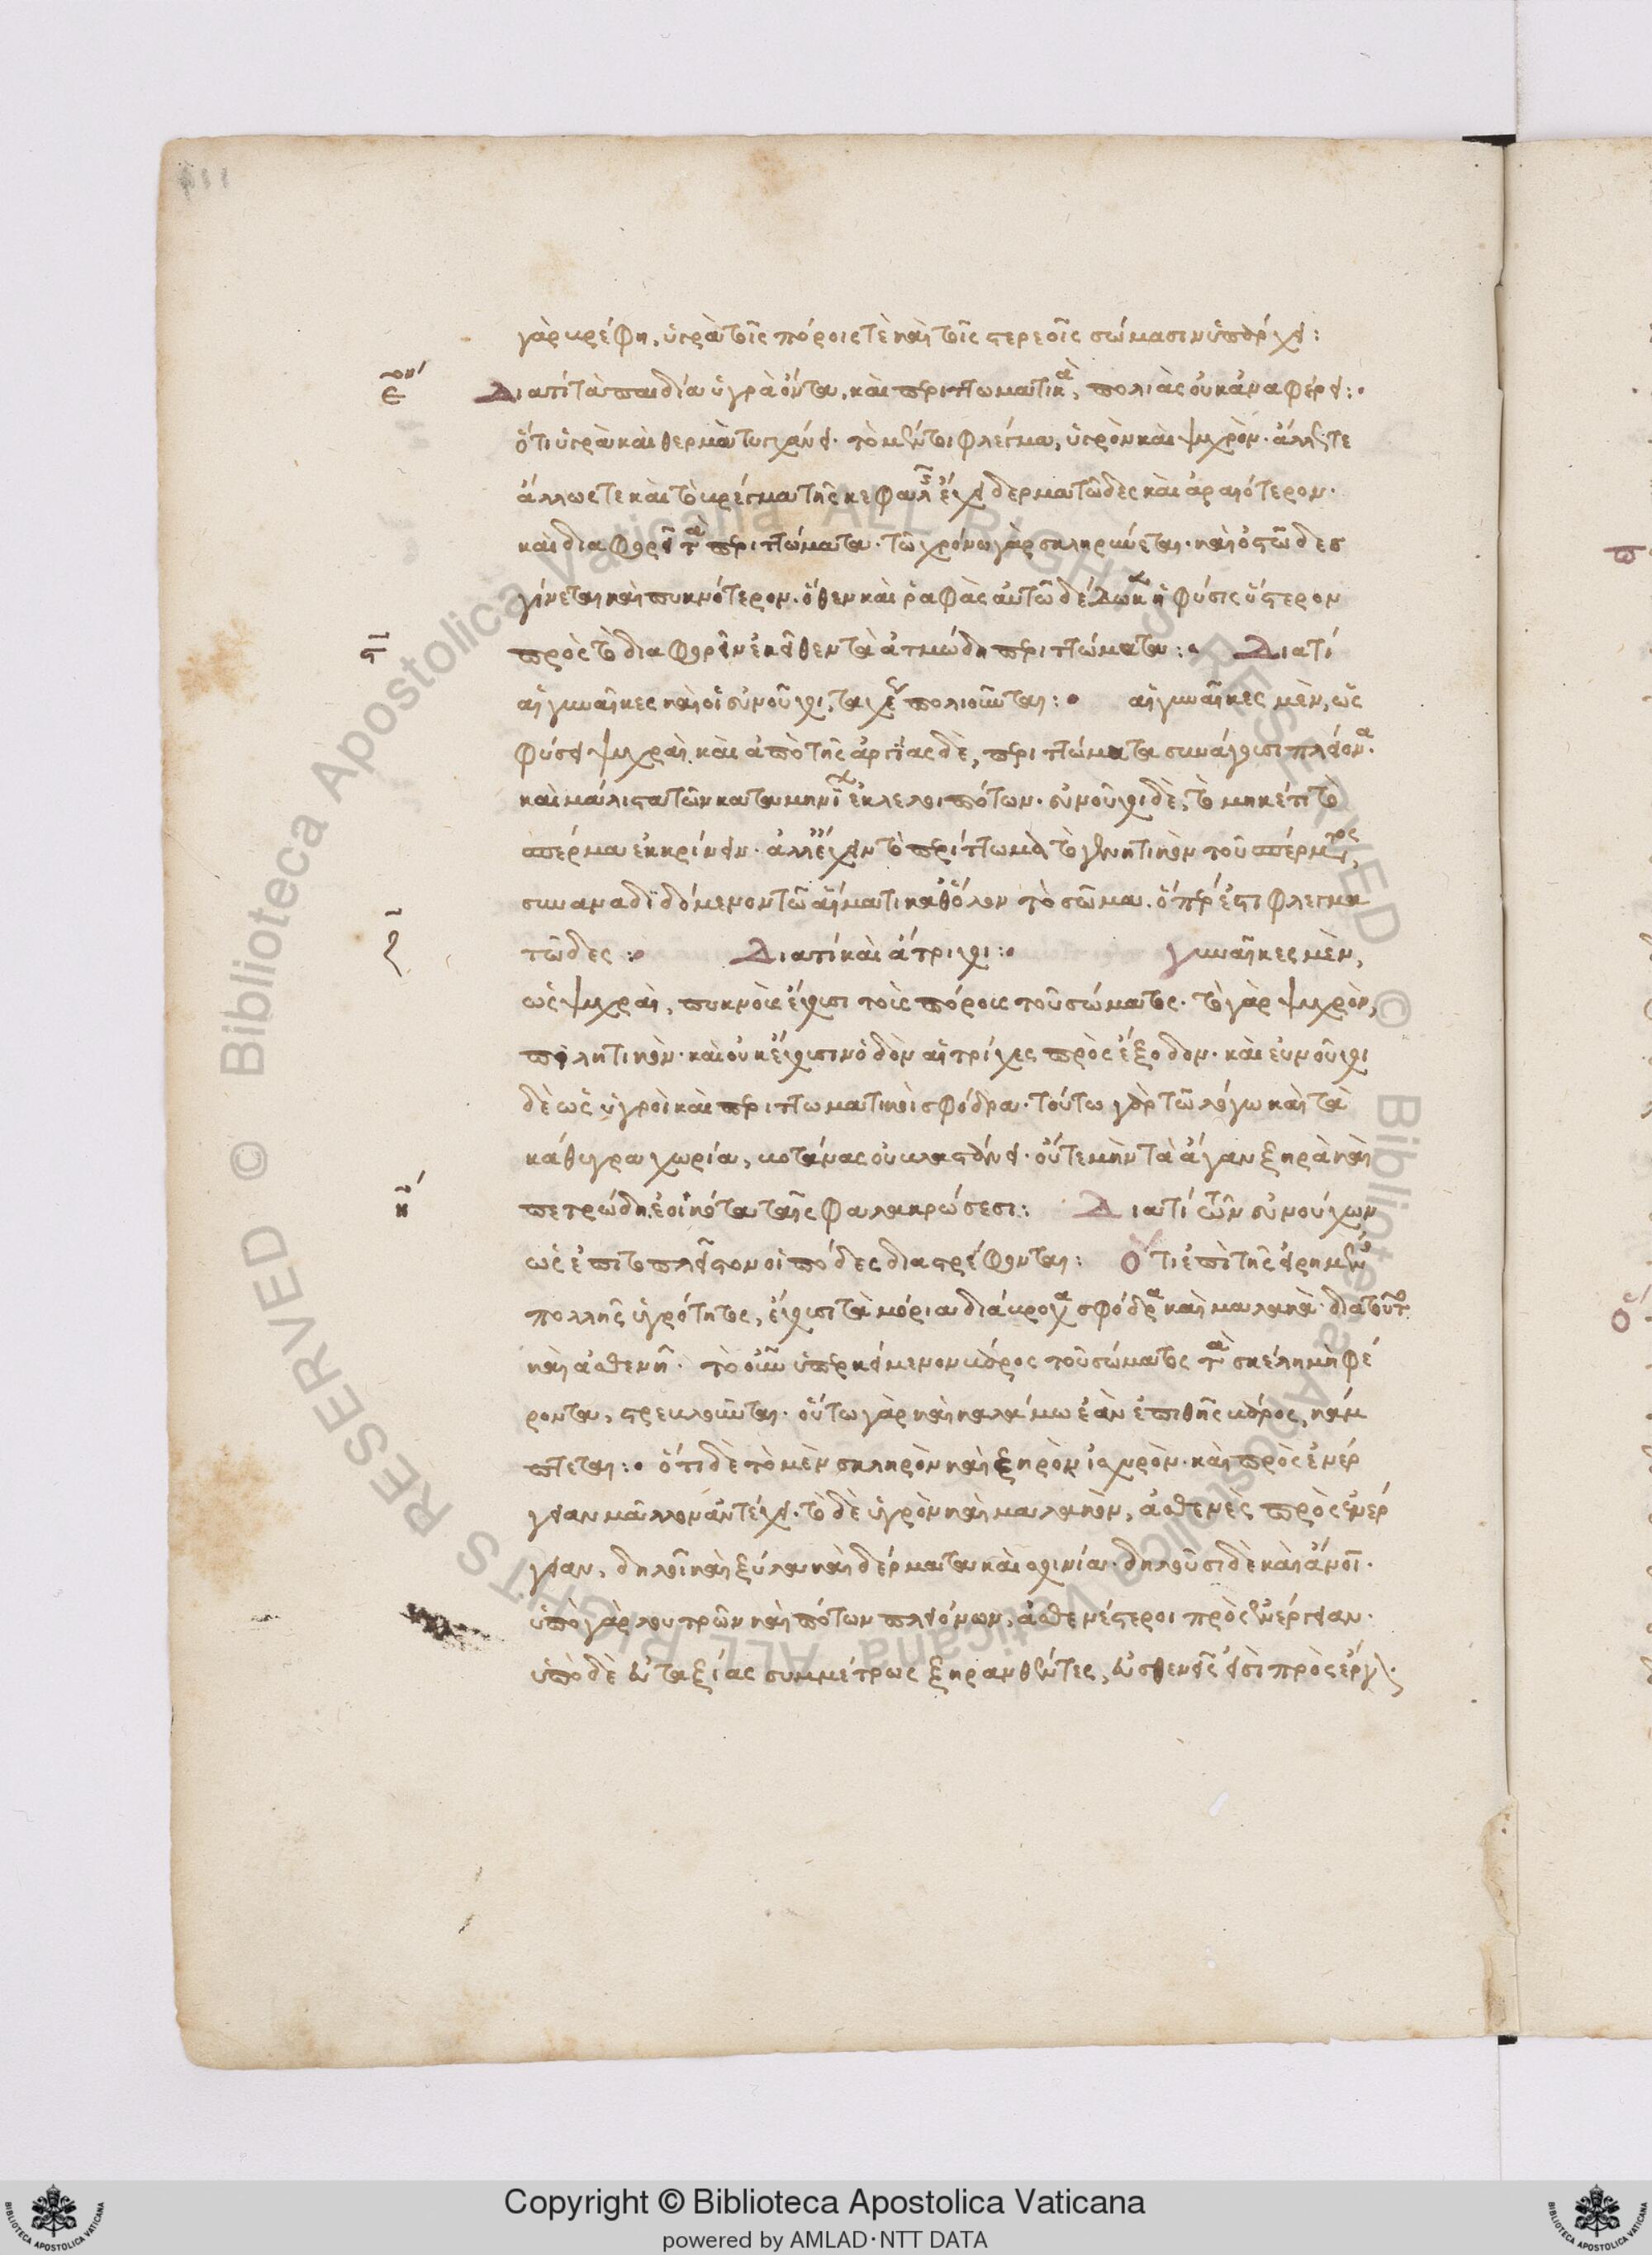 γὰρ βρέφη, ὑγρὰ τοῖς πόροις τὲ καὶ τοῖς στερεοῖς σώμασιν ὑπάρχει:
Διατί τὰ παιδία ὑγρὰ ὄντα, καὶ περιττωματικὰ, πολιὰς οὐκ ἀναφέρει:
ὅτι ὑγρὰ καὶ θερμὰ τυγχάνει. τὸ μέντοι φλέγμα, ὑγρὸν καὶ ψυχρὸν.
ἄλλως τε καὶ τὸ βρέγμα τῆς κεφαλῆς ἔχει δερματῶδες καὶ ἀραιότερον.
καὶ διαφορεῖ τὰ περιττώματα. τῶ χρόνω γὰρ σκληρύνεται. καὶ ὀστῶδες
γίνεται καὶ πυκνότερον. ὅθεν καὶ ῥαφὰς αὐτῶ δέδωκεν ἡ φύσις ὕστερον
πρὸς τὸ διαφορεῖν ἐκεῖθεν τὰ ἀτμώδη περιττώματα: Διατί
αἱ γυναῖκες καὶ οἱ εὐνοῦχοι, ταχέως πολιοῦνται: αἱ γυναῖκες μὲν, ὡς
φύσει ψυχραὶ. καὶ ἀπὸ τῆς ἀργίας δὲ, περιττώματα συνάγουσι πλείονα.
καὶ μάλιστα τῶν καταμηνίων ἐκλελοιπότων. εὐνοῦχοι δὲ, τὸ μηκέτι τὸ
σπέρμα ἐκκρίνειν. ἀλλ' ἔχειν τὸ περίττωμα τὸ γεννητικὸν τοῦ σπέρματος,
συναναδιδόμενον τῶ αἵματι καθόλον τὸ σῶμα. ὅπερ ἐστι φλεγμα
τῶδες: Διατί καὶ ἄτριχοι: γυναῖκες μὲν,
ὡς ψυχραὶ, πυκνοῖς ἔχουσι τοῖς πόροις τοῦ σώματος. τὸ γὰρ ψυχρὸν,
πιλητικὸν. καὶ οὐκ ἔχουσιν ὁδὸν αἱ τρίχες πρὸς ἔξοδον. καὶ εὐνοῦχοι
δὲ ὡς ὑγροὶ καὶ περιττωματικοὶ σφόδρα. τούτω γὰρ τῶ λόγω καὶ τὰ
κάθυγρα χωρία, βοτάνας οὐ βλαστάνει. οὔτε μὴν τὰ ἄγαν ξηρὰ καὶ
πετρώδη. ἐοικότα ταῖς φαλακρώσεσι: Διατί τῶν εὐνούχων
ὡς ἐπιτοπλεῖστον οἱ πόδες διαστρέφονται: Ὅτι ἐπὶ τῆς εἰρημένης
πολλῆς ὑγρότητος, ἔχουσι τὰ μόρια διάβροχα σφόδρα καὶ μαλακὰ. διατοῦτο
καὶ ἀσθενῆ. τὸ οὖν ὑπερκείμενον βάρος τοῦ σώματος τὰ σκέλη μὴ φέ
ροντα, στρεβλοῦνται. οὕτω γὰρ καὶ καλάμω ἐὰν ἐπιθῆς βάρος, κάμ
πτεται: ὅτι δὲ τὸ μὲν σκληρὸν καὶ ξηρὸν ἰσχυρὸν. καὶ πρὸς ἐνέρ
γειαν μᾶλλον ἀντέχει. τὸ δὲ ὑγρὸν καὶ μαλακὸν, ἀσθενὲς πρὸς ἐνέρ
γειαν, δηλοῖ καὶ ξύλα καὶ δέρματα καὶ σχοινία. δηλοῦσι δὲ καὶ ἄνοι.
ὑπὸ γὰρ λουτρῶν καὶ πότων πλειόνων, ἀσθενέστεροι πρὸς ἐνέργειαν.
ὑπὸ δὲ εὐταξίας συμμέτρως ξηρανθέντες, εὐσθενεῖς εἰσὶ πρὸς ἔργα.